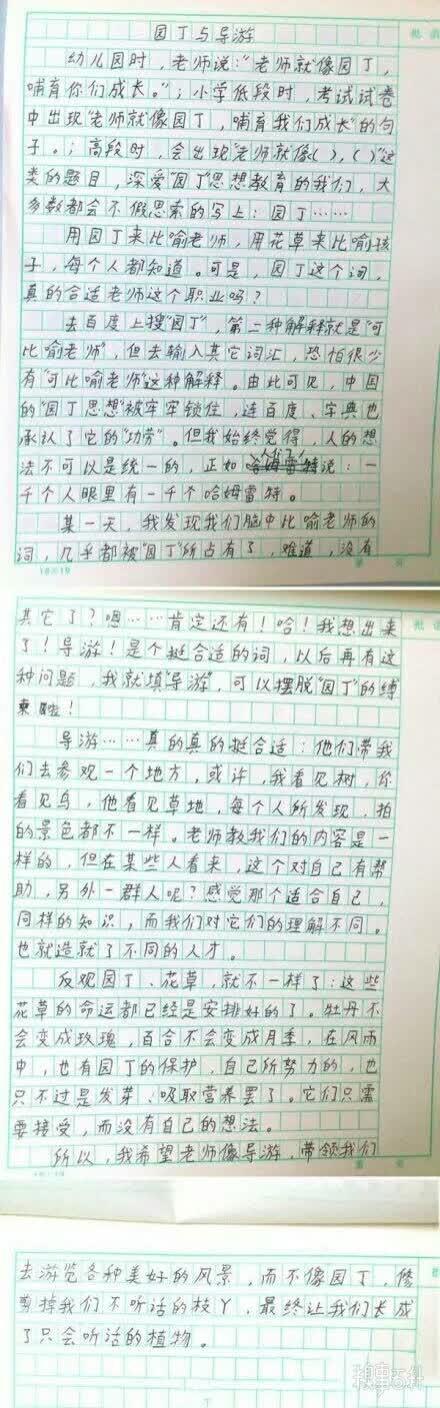 园丁与导游
幼儿园时，老师说：“老师就像园丁，
哺育你们成长。”；小学低段时，考试试卷
中出现“老师就像园丁，哺育我们成长”的句
子。；高段时，会出现“老师就像( )，( )”这
类的题目，深爱“园丁”思想教育的我们，大
多数都会不假思索的写上：园丁……
用园丁来比喻老师，用花草来比喻孩
子，每个人都知道。可是，园丁这个词，
真的合适老师这个职业吗？
去百度上搜“园丁”，第二种解释就是“可
比喻老师”，但去输入其它词汇，恐怕很少
有“可比喻老师”这种解释。由此可见，中国
的“园丁思想”被牢牢锁住，连百度、字典也
承认了它的“功劳”。但我始终觉得，人的想
法不可以是统一的，正如人们说：一
千个人眼里有一千个哈姆雷特。
某一天，我发现我们脑中比喻老师的
词，几乎都被“园丁”所占有了，难道，没有
其它了？嗯……肯定还有！哈！我想出来
了！导游！是个挺合适的词，以后再有这
种问题，我就填“导游”，可以摆脱“园丁”的缚
束啦！
导游……真的真的挺合适：他们带我
们去参观一个地方，或许，我看见树，你
看见鸟，他看见草地，每个人所发现、拍
的景色都不一样。老师教我们的内容是一
样的，但在某些人看来，这个对自己有帮
助，另外一群人呢？感觉那个适合自己，
同样的知识，而我们对它们的理解不同。
也就造就了不同的人才。
反观园丁、花草，就不一样了：这些
花草的命运都已经是安排好的了。牡丹不
会变成玫瑰，百合不会变成月季，在风雨
中，也有园丁的保护，自己所努力的，也
只不过是发芽、吸取营养罢了。它们只需
要接受，而没有自己的想法。
所以，我希望老师像导游，带领我们
去游览各种美好的风景，而不像园丁，修
剪掉我们不听话的枝丫，最终让我们长成
了只会听话的植物。
糗事百科